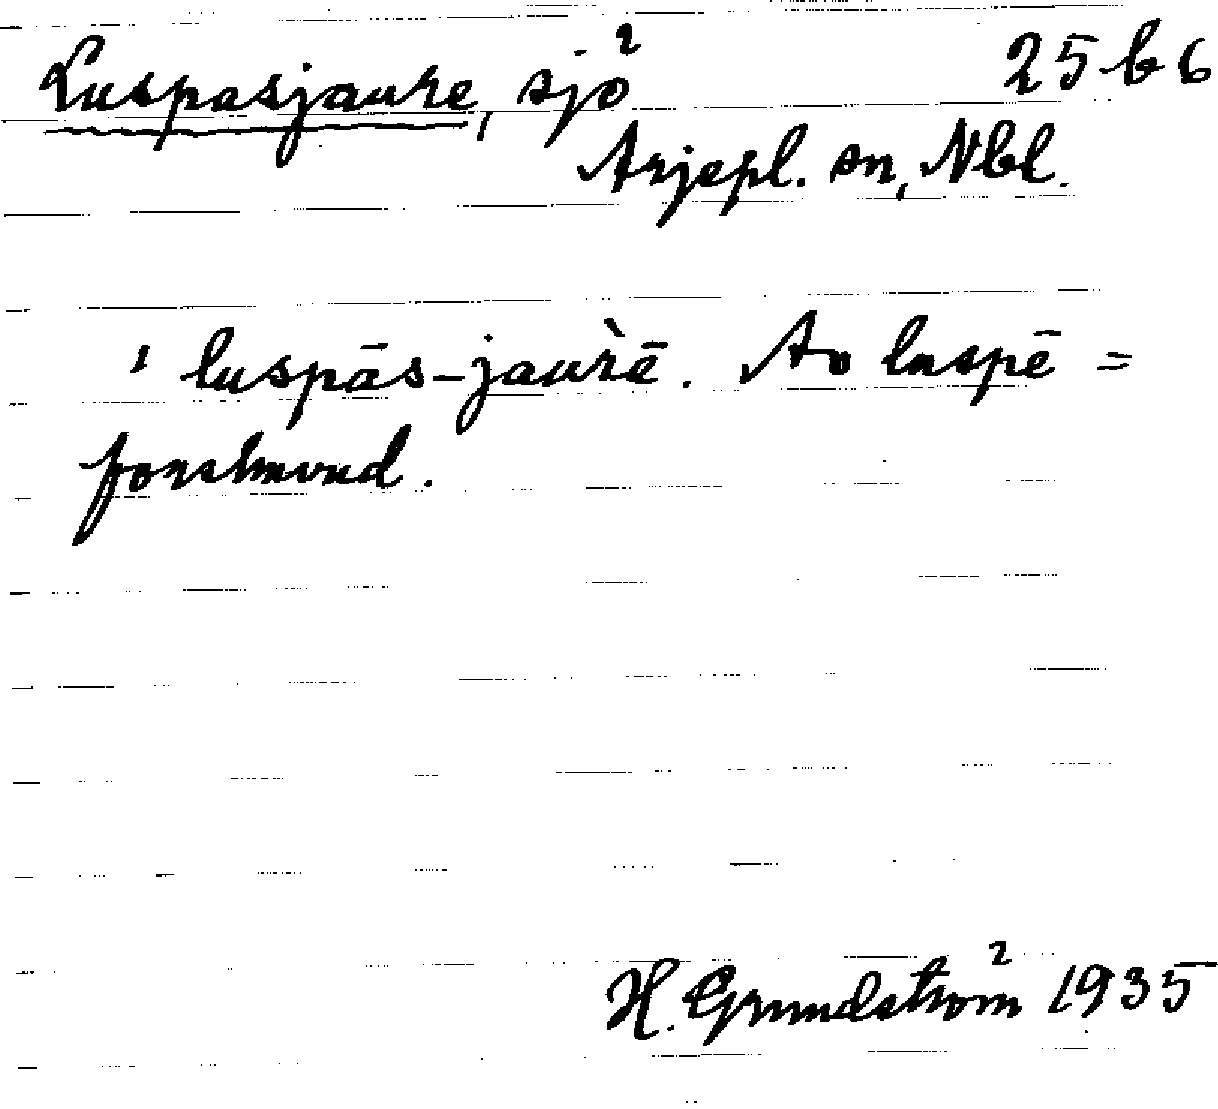 Luspasjaure, sjö 25 b 6
Arjepl. sn, Nbl.
ˈluspās-jaùrē. Av luspē =
forshuvud.
H. Grundström 1935